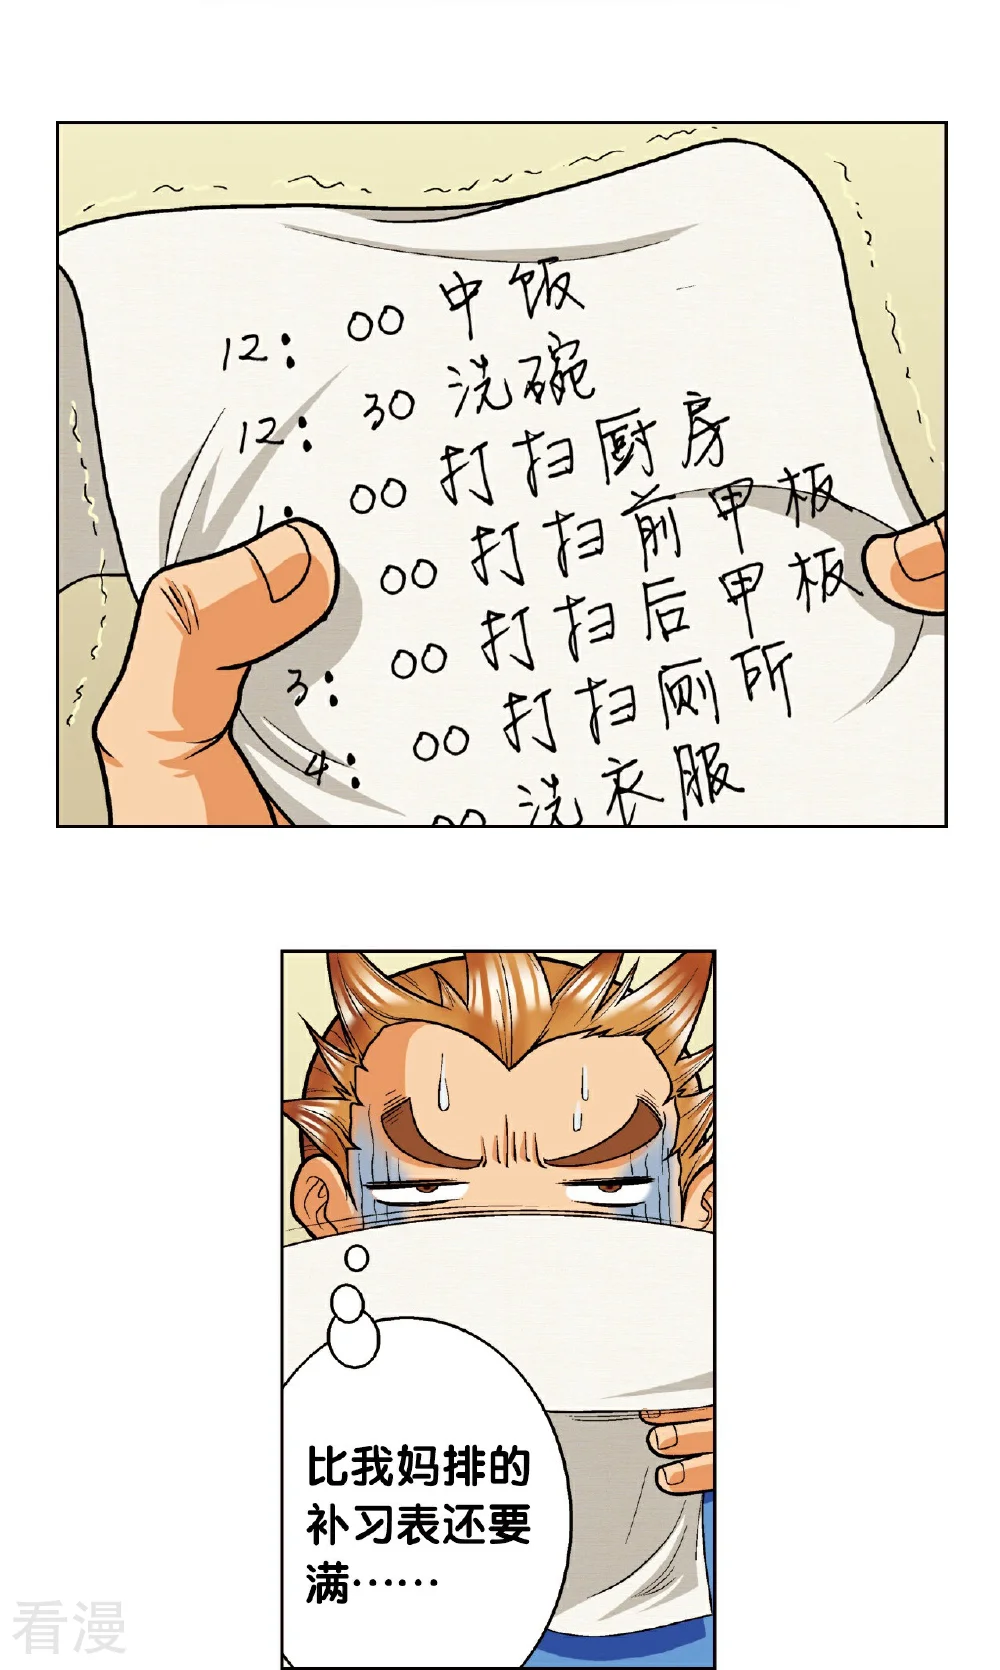 12：00 中饭
12：30 洗碗
1：00 打扫厨房
：00 打扫前甲板
3：00 打扫后甲板
4：00 打扫厕所
00 洗衣服
比我妈排的
补习表还要
满……
看漫